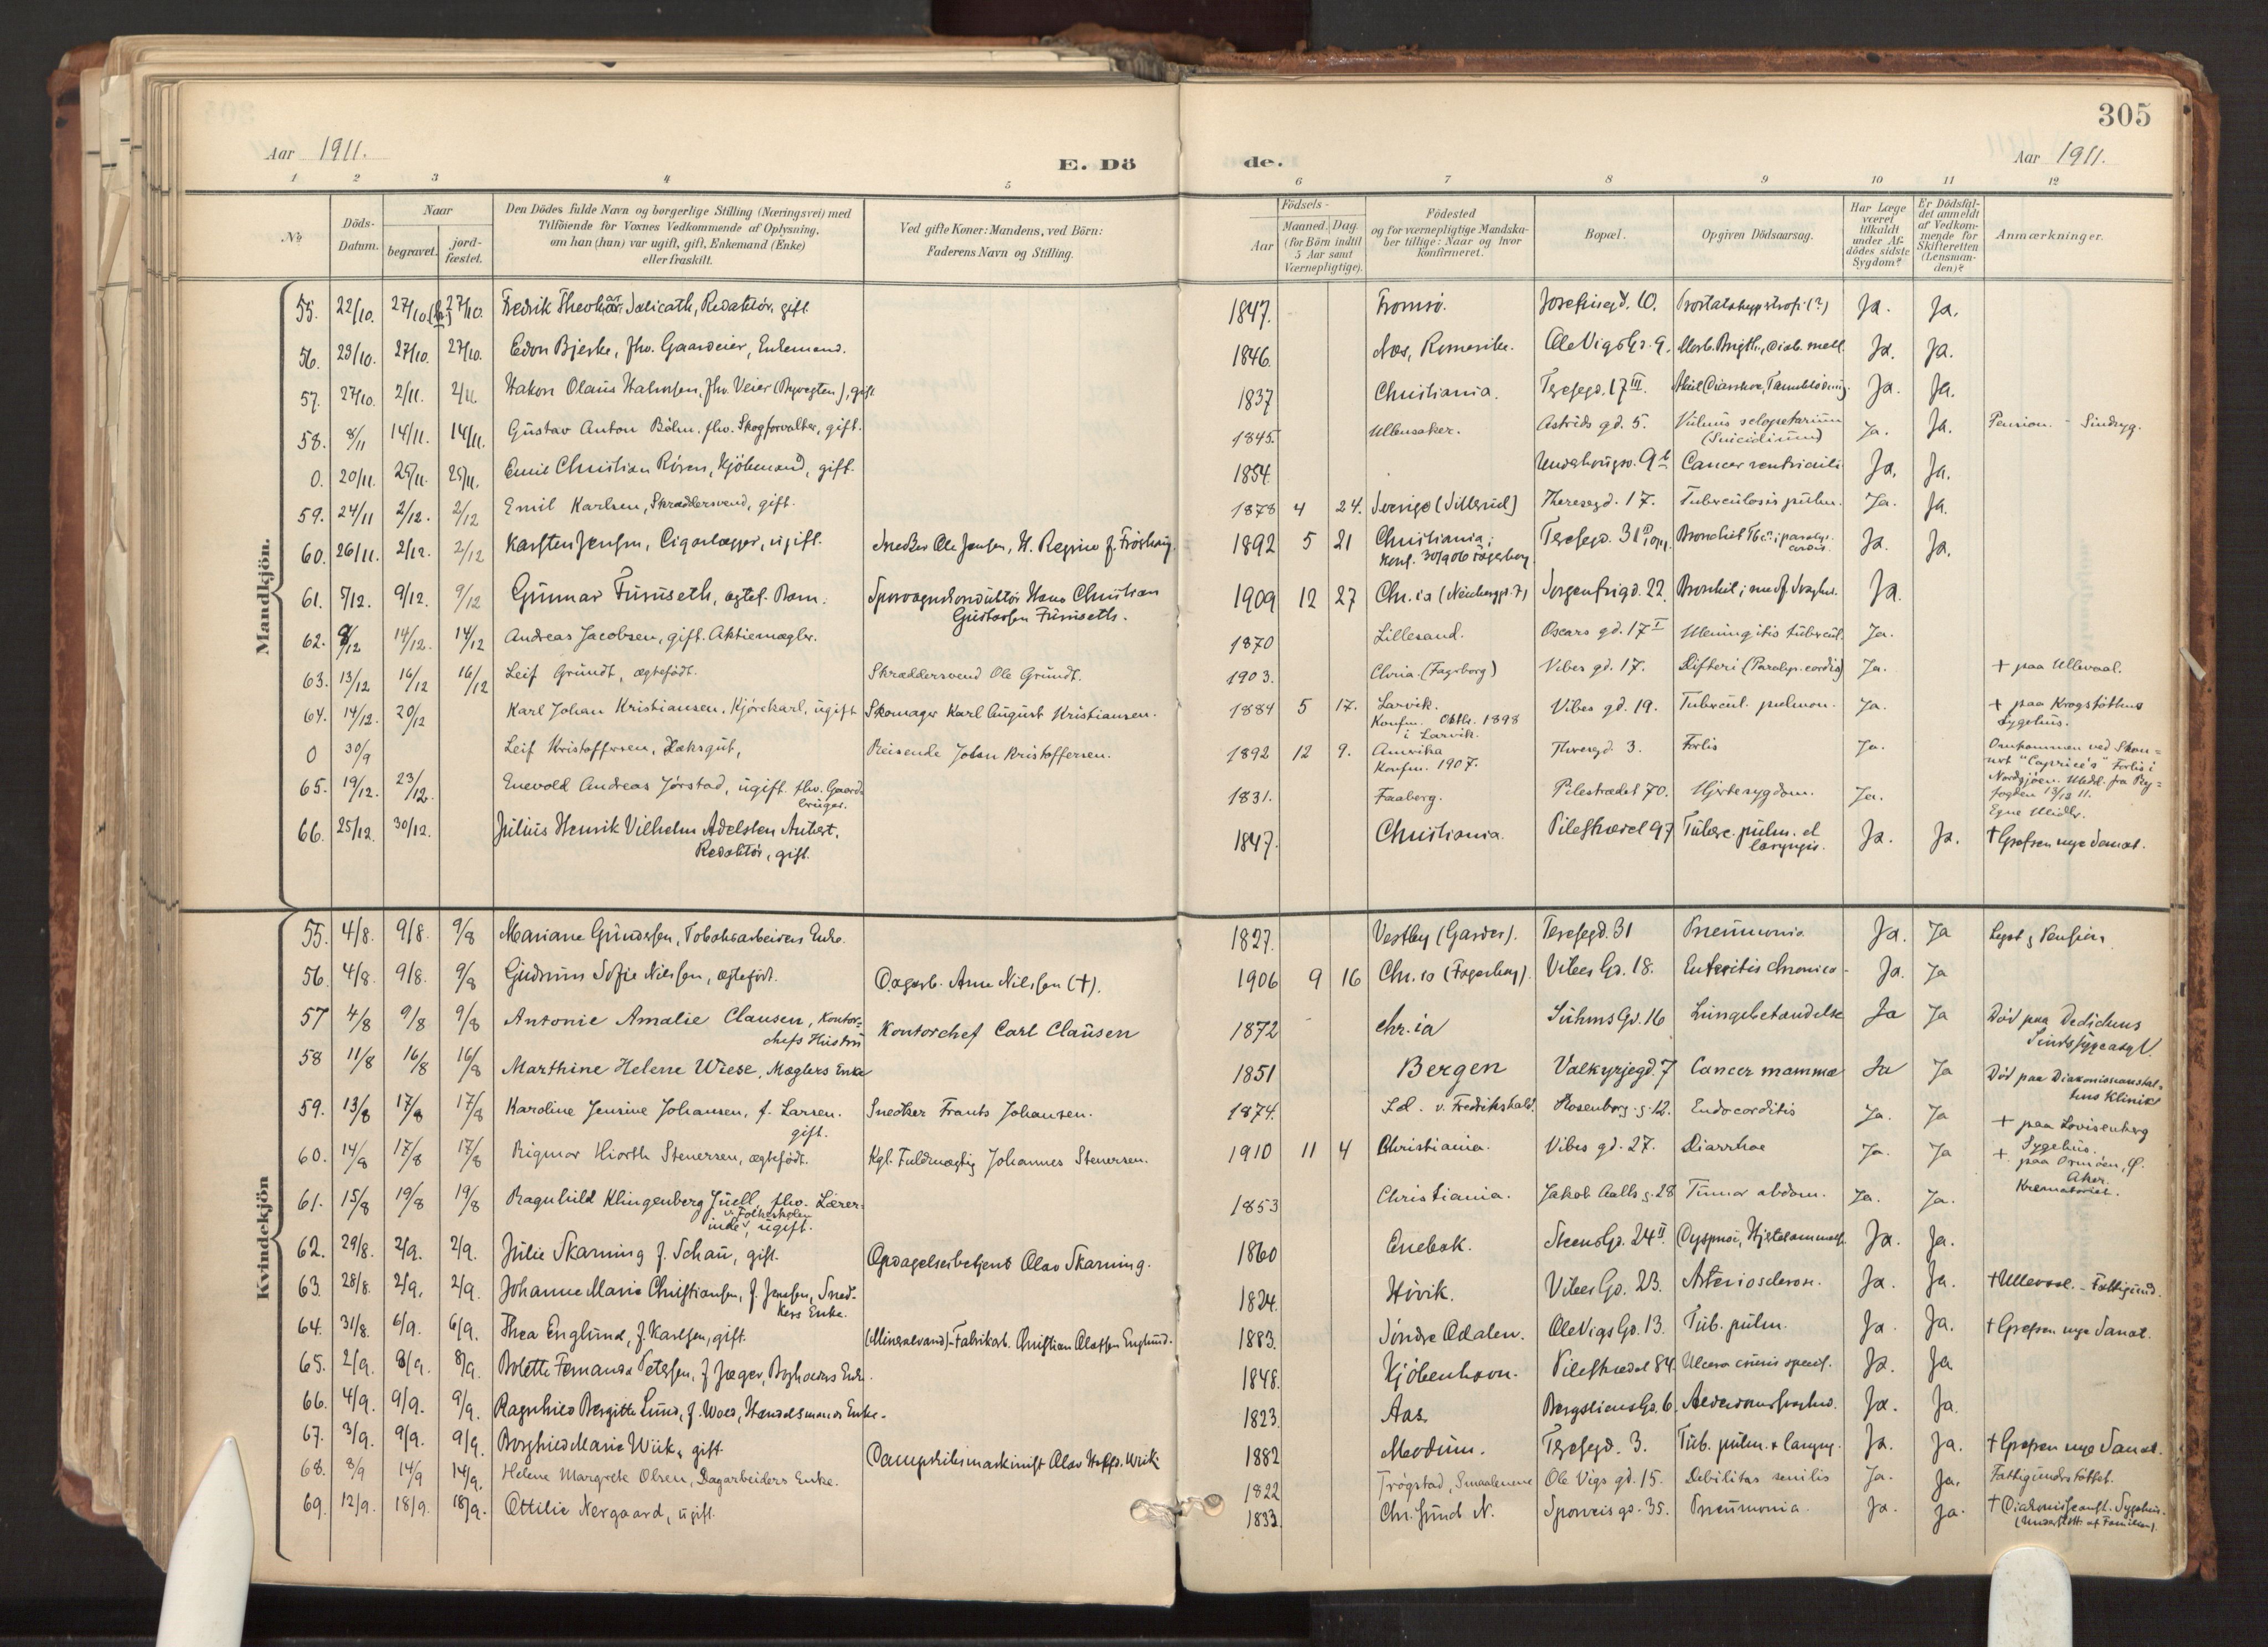 305
Aar 1911.
E. Dö
de.
Aar 1911.
1 2 3 4 5 6 7 8 9 10 11 12
No
Döds-Datum.
Naar
begravet.
jord-fæstet.
Den Dödes fulde Navn og borgerlige Stilling (Næringsvei) med
Tilföiende for Voxnes Vedkommende af Oplysning,
om han (hun) var ugift, gift, Enkemand (Enke)
eller fraskilt.
Ved gifte Koner: Mandens, ved Börn:
Faderens Navn og Stilling.
Födsels-
Aar
Maaned. Dag.
(for Börn indtil
5 Aar samt
Værnepligtige).
Födested
og for værnepligtige Mandska-
ber tillige: Naar og hvor
konfirmeret.
Bopæl.
Opgiven Dödsaarsag.
Har Læge
været
tilkaldt
under Af-
dödes sidste
Sygdom?
Er Dödsfal-
det anmeldt
af Vedkom-
mende for
Skifteretten
(Lensman-
den)?
Anmærkninger.
Mandkjön.
55. 22/10. 27/10 27/10. Fredrik Redaktör, gift. 1847. Tromsö. Josefinegd. 10. Prostatahypertrofi (?) Ja. Ja.
56. 23/10. 27/10. 27/10. Edvon Bjerke, fhv. Gaardeier, Enkemand. 1846. Nes, Romerike. Ole Vigs Gd. 9. Morb. Brigth., diab. mell. Ja. Ja.
57. 27/10. 2/11. 2/11. Hakon Olaus Halvorsen, fhv. Veier, gift. 1837 Christiania. Teresegd. 17 III. Ja. Ja.
58. 8/11 14/11. 14/11. Gustav Anton Böhn, fhv. Skogforvalter, gift. 1845. Ullensaker. Astrids gd. 5. Vulnus sclopetarium
(Suicidium) Ja. Ja. Pension. - Sindsyg.
0. 20/11. 25/11. 25/11. Emil Christian Kjöbmand, gift. 1854. 9 b Cancer ventriculi Ja. Ja.
59. 24/11 2/12. 2/12 Emil Karlsen, Skræddersvend, gift. 1878 4 24. Sverige (Sillerud) Theresegd. 17. Tuberculosis pulm. Ja. Ja.
60. 26/11. 2/12. 2/12 Karsten Jensen, ugift. Snedker Ole Jensen, H. Regine f. 1892 5 21 Christiania;
Konf. 30/9 06 Fagerborg Teresegd. 31 Ja. Ja.
61. 5/12. 9/12. 9/12 Gunnar Furuseth, ægtef. Barn. Sporvognskonduktör Hans Christian
Gustavsen Furuseth. 1909 12 27 Chr.ia Sorgenfrigd. 22. Bronkit; Ja.
62. 8/12 14/12. 14/12 Andreas Jacobsen, gift. Aktiemægler. 1870 Lillesand. Oscars gd. 17 I Meningitis tubercul. Ja.
63. 13/12 16/12 16/12 Leif Grundt, ægtefödt. Skræddersvend Ole Grundt. 1903. Chria. (Fagerborg) Vibes gd. 17. Difteri (Paralys. cordis) Ja. + paa Ullevaal.
64. 14/12. 20/12 Karl Johan Kristiansen, Kjörekarl, ugift Skomager Karl August Kristiansen. 1884 5 17. Larvik.
Konfm. Oktbr. 1898
i Larvik. Vibes gd. 19. Tubercul. pulmon. Ja. + paa Krogstöttens
Sygehus.
0 30/9 Leif Kristoffersen, Dæksgut, Reisende Johan Kristoffersen. 1892 12 9. Amerika
Konfm. 1907. Theresgd. 3. Forlis Ja. Omkommen ved Skon-
nert "Caprice's" Forlis i
Nordsjöen. Medd. fra By-
fogden 13/12 11.
65. 19/12. 23/12. Enevold Andreas Jörstad, ugift. fhv. Gaard-
bruger. 1831. Faaberg. Pilestrædet 70. Hjertesygdom. Ja. Egne Midler.
66. 25/12. 30/12. Julius Henrik Vilhelm Adelsten Aubert.
Redaktör, gift. 1847. Christiania. Pilestrædet 97 Tuberc. pulm. et
laryngis. Ja. Ja. + Grefsen nye Sanat.
Kvindekjön
55. 4/8. 9/8. 9/8 Mariane Gundersen, Tobaksarbeiders Enke. 1827. Vestby (Garder). Teresegd. 31 Pneumonia. Ja. Ja
56. 4/8. 9/8. 9/8 Gudrun Sofie Nilssen, ægtefödt. Dagarb. Arne Nilssen (+). 1906 9 16 Chr.ia (Fagerborg). Vibes Gd. 18. Enteritis chronica. Ja. Ja
57 4/8 9/8 9/8 Antonie Amalie Clausen, Kontor-
chefs Hustru Kontorchef Carl Clausen 1872 Chr.ia Suhms Gd. 16 Lungebetændelse Ja Ja Död paa Dedichens
Sindssygeasyl.
58 11/8 16/8 16/8 Marthine Helene Wiese, Mæglers Enke 1851 Bergen Valkyrjegd. 7 Cancer mammæ Ja Ja Död paa Diakonissanstal-
tens Klinik
59. 13/8 17/8 17/8 Karoline Jensine Johansen, f. Larsen.
gift. Snedker Frants Johansen. 1874. Id. v. Fredrikshald. Rosenborg. g. 12. Endocarditis Ja. Ja + paa Lovisenberg
Sygehus.
60. 14/8 17/8 17/8 Rigmor Hiorth Stenersen, ægtefödt. Kgl. Fuldmægtig Johannes Stenersen. 1910 11 4 Christiania. Vibes gd. 27. Diarrhoe Ja. Ja + paa Ormöen, Ö.
Aker.
61. 15/8 19/8 19/8 Ragnhild Klingenberg Juell, fhv. Lærer-
inde v. Folkeskolen, ugift. 1853 Christiania. Jakob Aalls g. 28 Tumor abdom. Ja. Ja. Krematoriet.
62. 29/8. 2/9. 2/9. Julie Skarning f. Schau, gift. Opdagelsesbetjent Olav Skarning. 1860 Enebak. Steens Gd. 24 II. Ja. Ja.
63. 28/8. 2/9. 2/9. Johanne Marie Christiansen, f. Jensen, Sned-
kers Enke. 1824. Hövik. Vibes Gd. 23. Arterioscleros. Ja. Ja. + Ullevaal. - Fattigund.
64. 31/8. 6/9. 6/9. Thea Englund, f. Karlsen, gift. (Mineralvand)-Fabrikarb. Christian Olafsen Englund. 1883. Söndre Odalen. Ole Vigs Gd. 13. Tub. pulm. Ja. Ja. + Grefsen nye Sanat.
65. 2/9. 8/9. 8/9. Bolette Fernanda Petersen, f. Jæger, Enke. 1848. Kjöbenhavn. Pilestrædet 84. Ulcera cruris Ja. Ja
66. 4/9. 9/9. 9/9. Ragnhild Bergitte Lund, f. Wold, Handelsmands Enke. 1823. Aas. Bergsliens Gd. 6. Ja. Ja.
67. 3/9. 9/9. 9/9. Borghild Marie Wiik, gift. Dampskibsmaskinist Olav Wiik. 1882 Modum. Teresegd. 3. Tub. pulm. & laryng. Ja. Ja. + Grefsen nye Sanat.
68. 8/9 14/9 14/9. Helene Margrete Olsen, Dagarbeiders Enke. 1822 Trögstad, Smaalenene Ole Vigs gd. 15. Debilitas senilis Ja. Ja. Fattigunderstöttet.
69. 12/9. 18/9. 18/9. Ottilie Nergaard, ugift. 1833. Chr.sund N. Sporveisgd. 35. Pneumonia. Ja. Ja. + Diakonisseanst. Sygehus.
(Understött. af Familien).